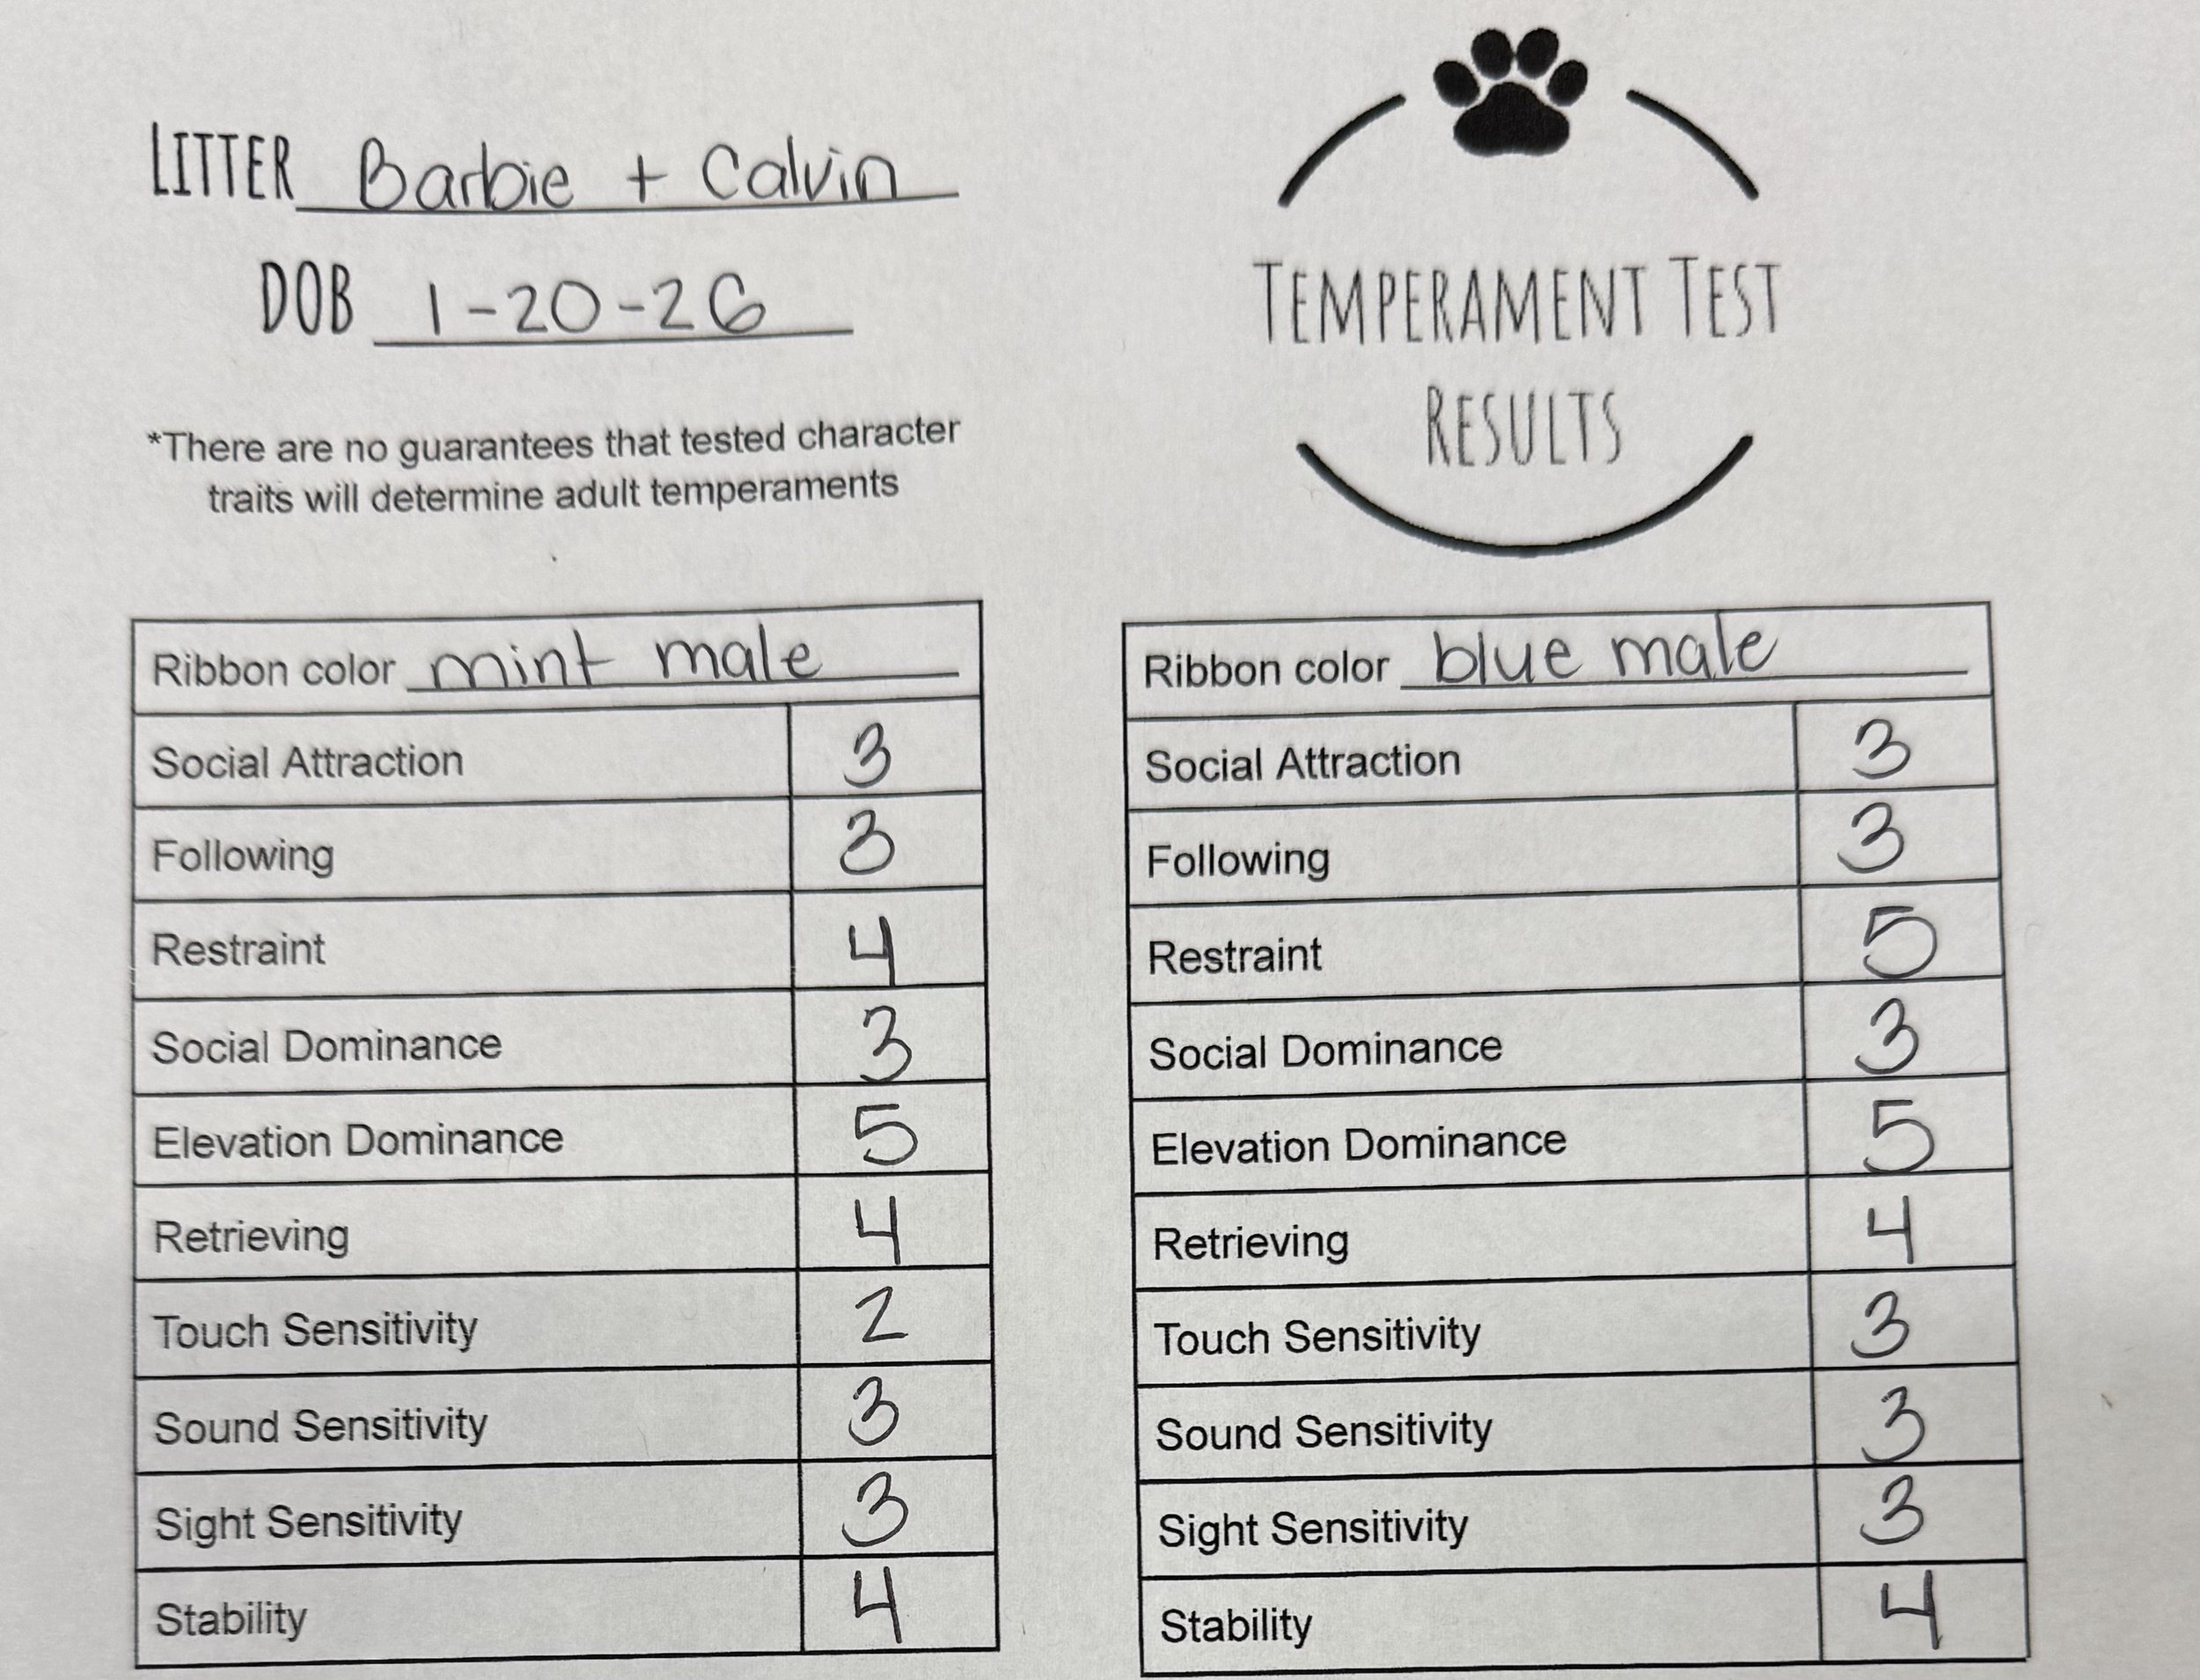 LITTER Barbie + Calvin
DOB 1-20-26
*There are no guarantees that tested character
traits will determine adult temperaments
TEMPERAMENT TEST
RESULTS
Ribbon color mint male
Social Attraction 3
Following 3
Restraint 4
Social Dominance 3
Elevation Dominance 5
Retrieving 4
Touch Sensitivity 2
Sound Sensitivity 3
Sight Sensitivity 3
Stability 4
Ribbon color blue male
Social Attraction 3
Following 3
Restraint 5
Social Dominance 3
Elevation Dominance 5
Retrieving 4
Touch Sensitivity 3
Sound Sensitivity 3
Sight Sensitivity 3
Stability 4